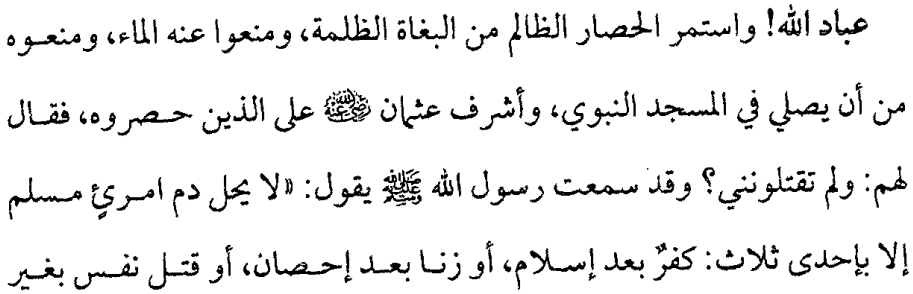 عباد الله! واستمر الحصار الظالم من البغاة الظلمة، ومنعوا عنه الماء، ومنعوه
من أن يصلي في المسجد النبوي، وأشرف عثمان رضي الله عنه على الذين حصروه، فقال
لهم: ولم تقتلونني؟ وقد سمعت رسول الله ﷺ يقول: «لا يحل دم امرئٍ مسلم
إلا بإحدى ثلاث: كفرٌ بعد إسلام، أو زنا بعد إحصان، أو قتل نفس بغير